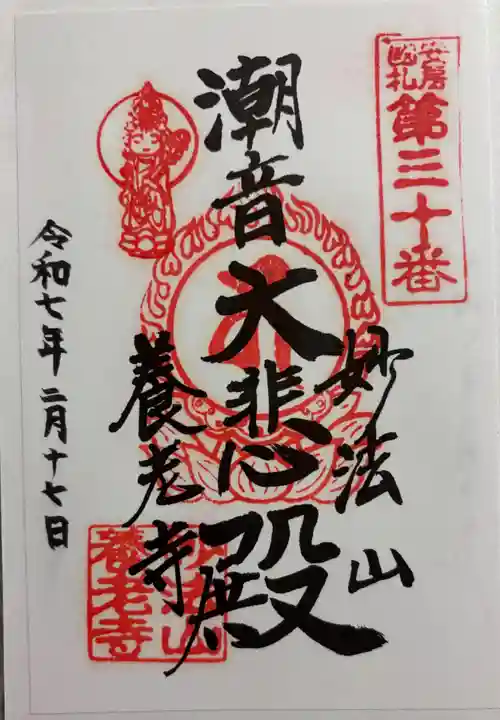 安房
巡札
第三十番
妙法山
潮音大悲殿
養老寺
令和七年二月十七日
妙法山
養老寺